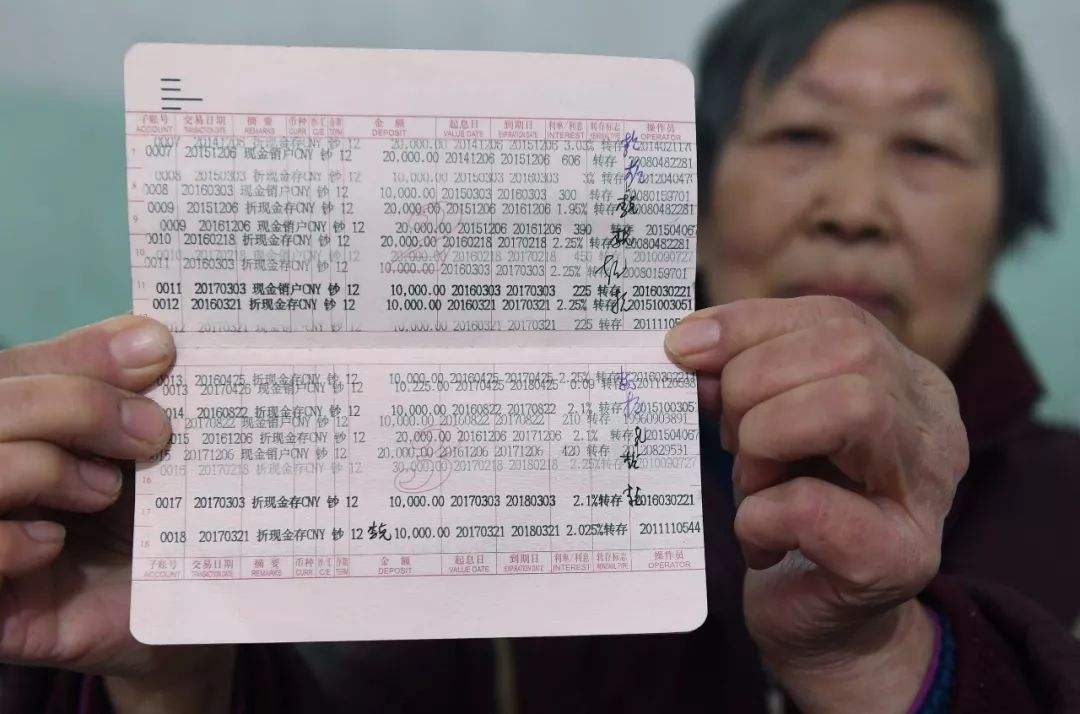 子账号 交易日期 摘要 币种 金额 起息日 到期日 利率/利息 转存标志 操作员
ACCOUNT TRANSACTION DATE REMARKS CURR C/E TERM DEPOSIT VALUE DATE EXPIRATION DATE INTEREST RENEWAL TYPE OPERATOR
0007 12 20,000.00 20141206 20151206 3.03%
7 0007 20151206 现金销户CNY 钞 12 20,000.00 20141206 20151206 606 转存 20080482281
0008 20150303 折现金存CNY 钞 12 10,000.00 20150303 20160303 3% 转存
8 0008 20160303 现金销户CNY 钞 12 10,000.00 20150303 20160303 300 转存 20080159701
0009 20151206 折现金存CNY 钞 12 20,000.00 20151206 20161206 1.95% 转存 20080482281
9 0009 20161206 现金销户CNY 钞 12 20,000.00 20151206 20161206 390 转存 201504067
0010 20160218 折现金存CNY 钞 12 20,000.00 20160218 20170218 2.25% 转存 20080482281
10 0010 20170218 12 20160218 20170218 450 转存 2010090727
0011 20160303 折现金存CNY 钞 12 10,000.00 20160303 20170303 2.25% 转存 20080159701
11 0011 20170303 现金销户CNY 钞 12 10,000.00 20160303 20170303 225 转存 2016030221
0012 20160321 折现金存CNY 钞 12 10,000.00 20160321 20170321 2.25% 转存 20151003051
20170321 现金销户CNY 钞 12 10,000.00 20160321 20170321 225 转存 2011110544
0013 20160425 折现金存CNY 钞 12 10,000.00 20160425 20170425 2.25% 转存
0013 20170426 现金销户CNY 钞 12 10,225.00 20170425 20180425 0.09 转存
14 20160822 折现金存CNY 钞 12 10,000.00 20160822 20170822 2.1% 转存 20151003051
20170822 现金销户CNY 钞 12 10,000.00 20160822 20170822 210 转存 19960903891
15 20161206 折现金存CNY 钞 12 20,000.00 20161206 20171206 2.1% 转存 201504067
20171206 现金销户CNY 钞 12 20,000.00 20161206 20171206 420 转存
16 0016 20170218 折现金存CNY 钞 12 30,000.00 20170218 20180218 2.25% 转存 20100090727
17 0017 20170303 折现金存CNY 钞 12 10,000.00 20170303 20180303 2.1% 转存 2016030221
18 0018 20170321 折现金存CNY 钞 12 10,000.00 20170321 20180321 2.025% 转存 2011110544
子账号 交易日期 摘要 币种 金额 起息日 到期日 利率/利息 转存标志 操作员
ACCOUNT TRANSACTION DATE REMARKS CURR C/E TERM DEPOSIT VALUE DATE EXPIRATION DATE INTEREST RENEWAL TYPE OPERATOR